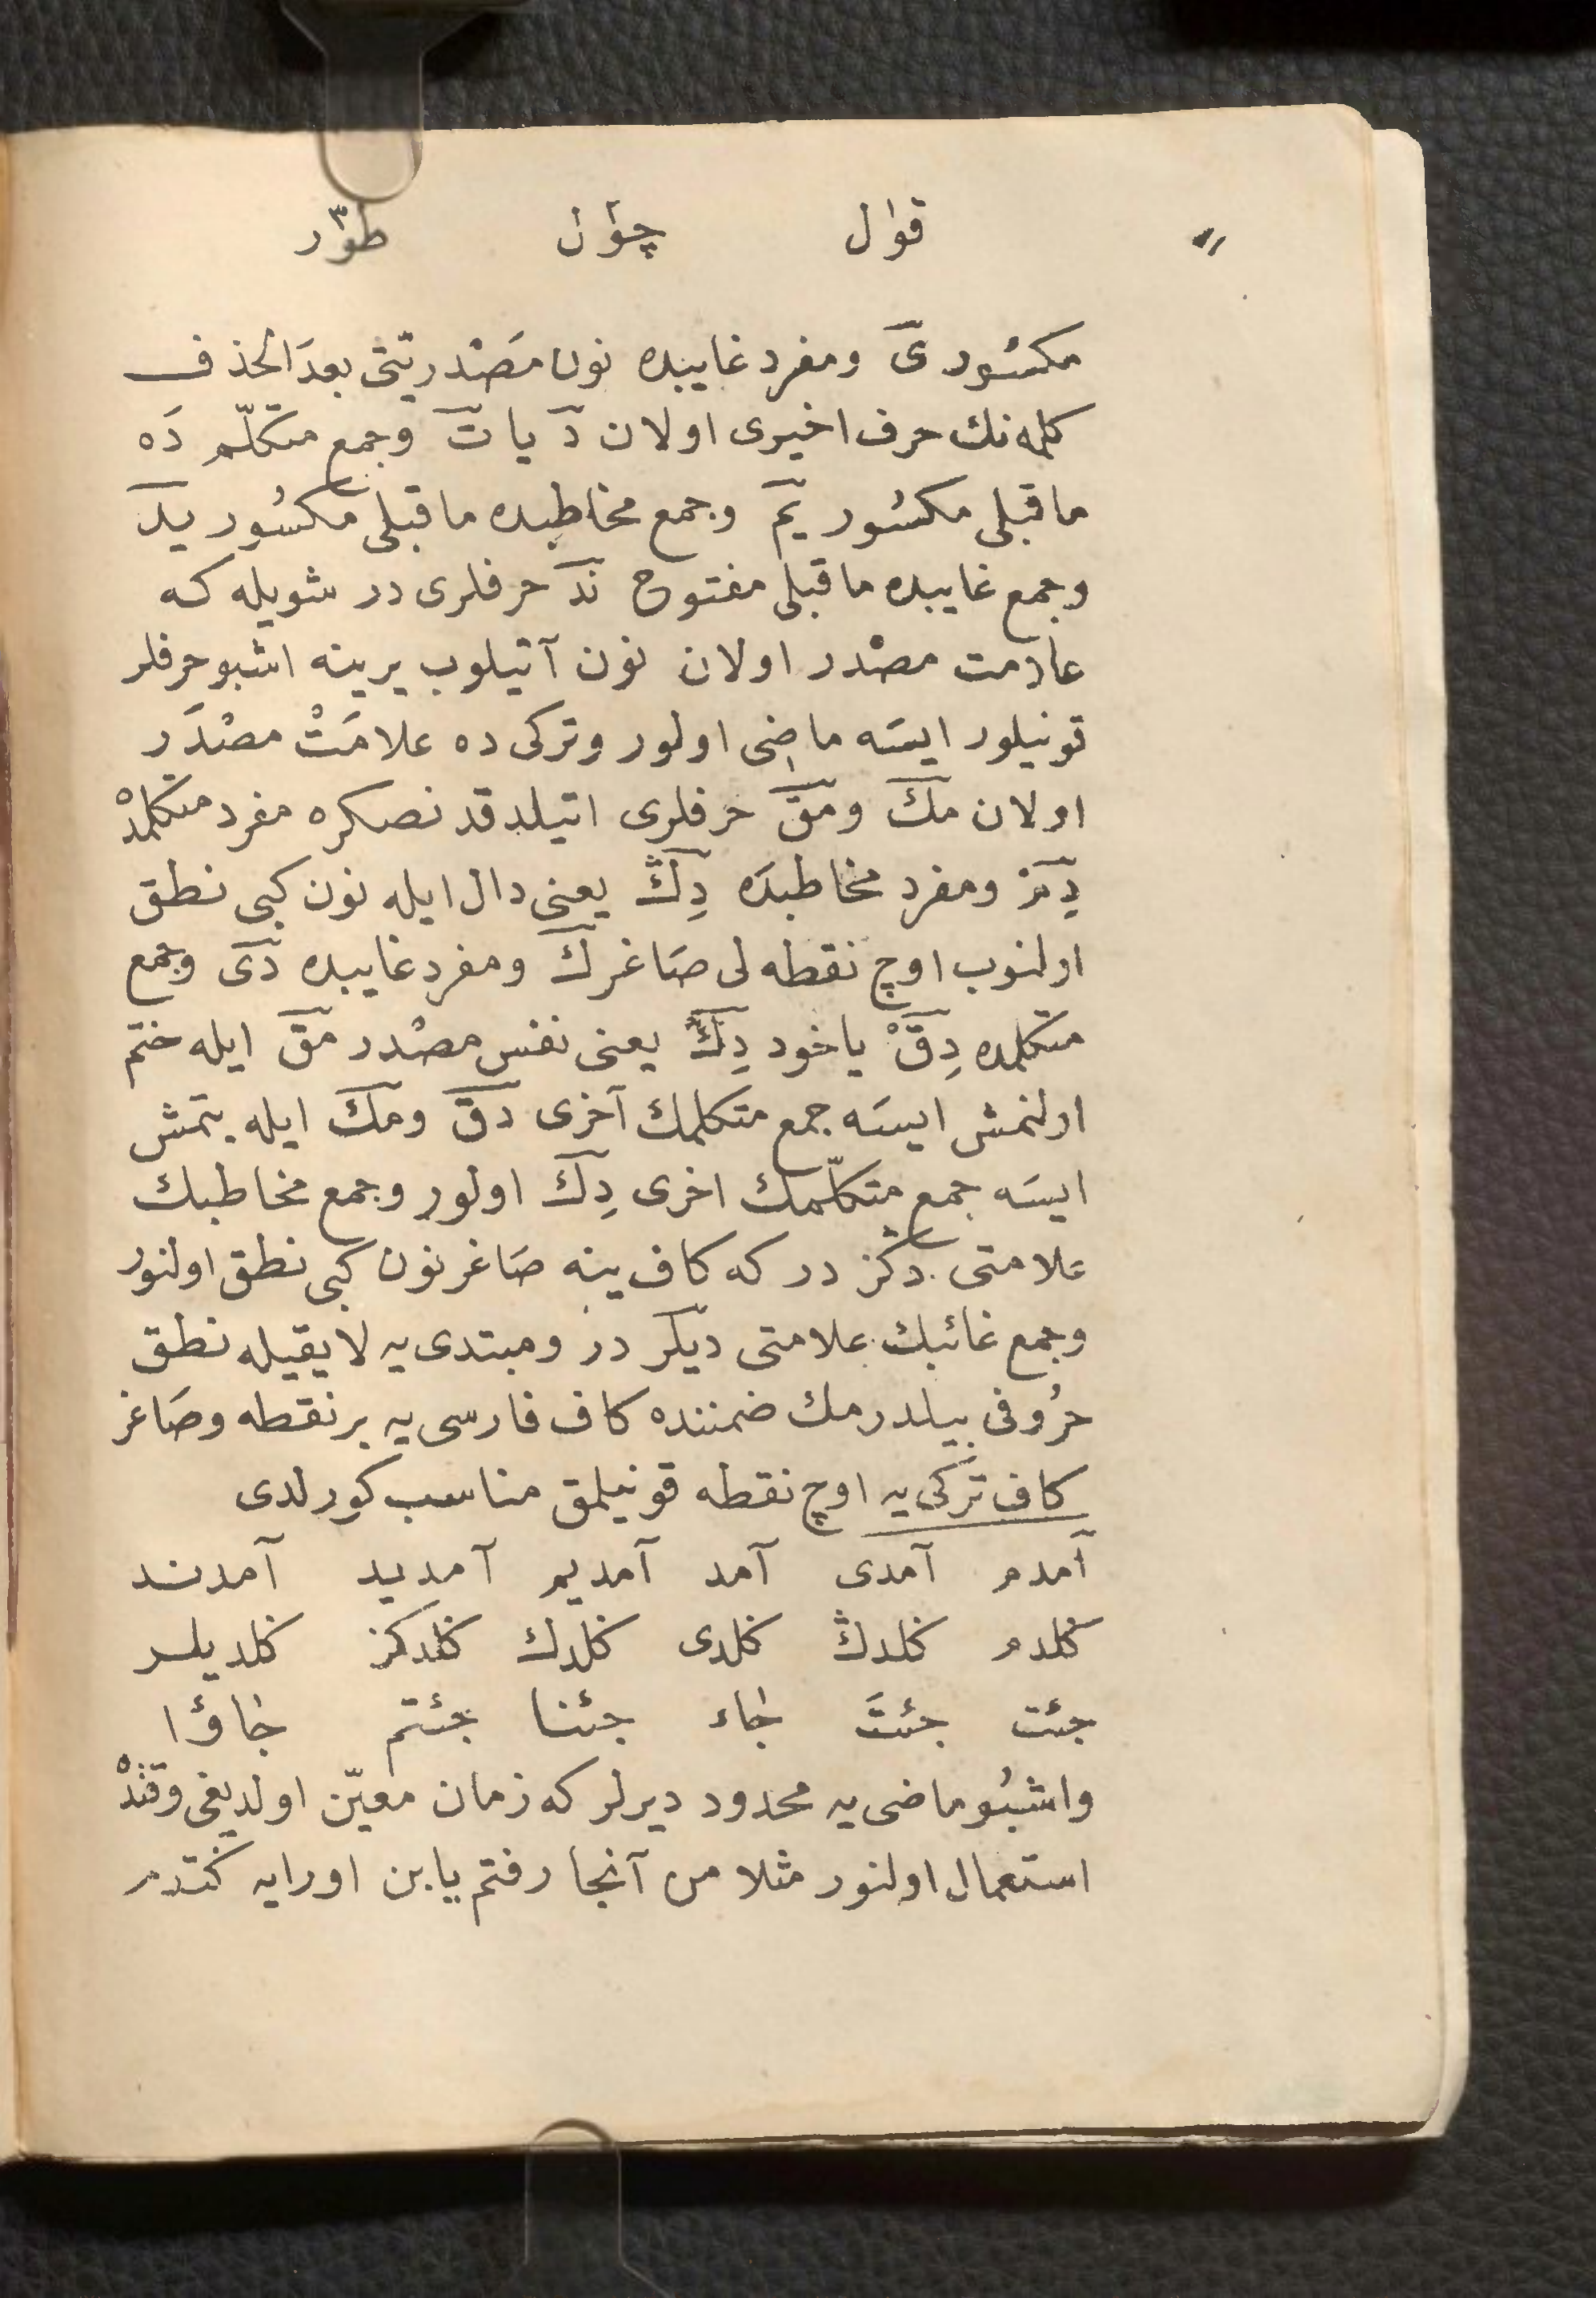 قوٰل چوٰل طوٓر
مكسُور یٓ ومفرد غايبده نون مَصْدريتی بعدَ الحذف
كلمه‌نك حرف اخیری اولان دٓ یا تٓ وجمع متكلّم دَه
ماقبلی مكسُور یمٓ وجمع مخاطبده ماقبلی مكسُور یدٓ
وجمع غايبده ماقبلی مفتوح ندٓ حرفلری در شویله كه
علامت مصْدر اولان نون آتیلوب یرینه اشبو حرفلر
قونیلور ایسَه ماضی اولور وتركی ده علامَتْ مصْدَر
اولان مكٓ ومقٓ حرفلری اتیلدقدنصكره مفرد متكلمدْه
دِمٓ ومفرد مخاطبدَه دِڭٓ یعنی دال ایله نون كبی نطق
اولنوب اوچ نقطه لی صَاغر كٓ ومفرد غایبده دیٓ وجمع
متكلمده دِقٓ یاخود دِكٓ یعنی نفس مصْدر مقٓ ایله ختم
اولنمش ایسَه جمع متكلمك آخری دقٓ ومكٓ ایله بتمش
ایسَه جمع متكلّمك اخری دِكٓ اولور وجمع مخاطبك
علامتی دڭز در كه كاف ینه صَاغر نون كبی نطق اولنور
وجمع غائبك علامتی دیلر در ومبتدی‌یه لایقیله نطق
حرُوفی بیلدرمك ضمننده كاف فارسی‌یه بر نقطه وصَاغر
كاف تركی‌یه اوچ نقطه قونیلمق مناسب كورلدی
آمدم آمدی آمد آمدیم آمدید آمدند
كلدم كلدڭ كلدی كلدك كلدڭز كلدیلر
جئت جئتَ جٰاء جئنا جئتم جٰاؤا
واشبُو ماضی‌یه محدود دیرلر كه زمان معیّن اولدیغی وقتدْه
استعمال اولنور مثلا من آنجا رفتم یا بن اورایه كتدم